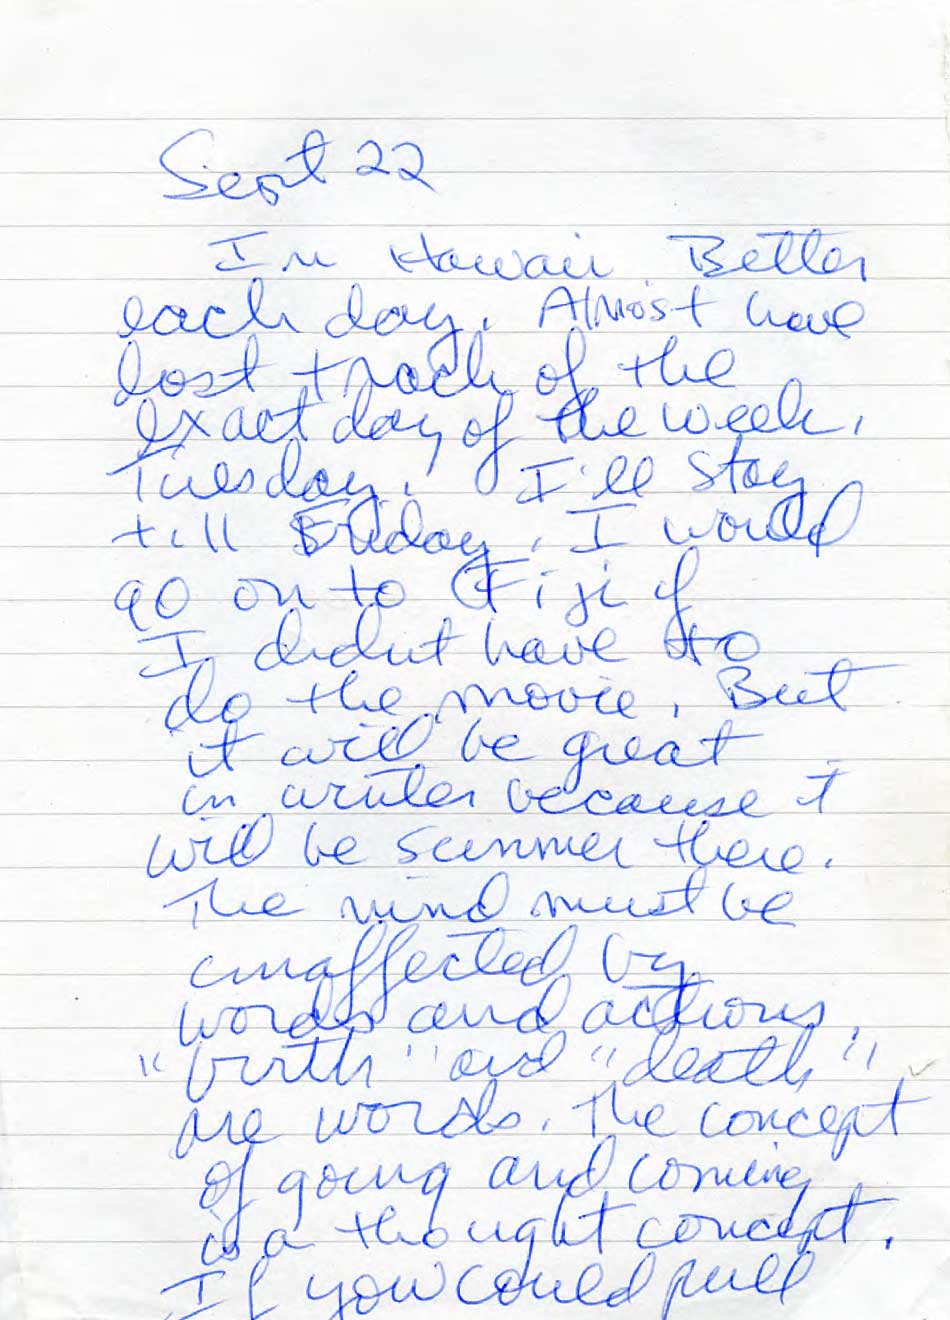 Sept 22
In Hawaii Better
each day. Almost have
lost track of the
exact day of the week,
Tuesday. I'll stay
till Friday. I would
go on to Fiji if
I didnt have to
do the movie. But
it will be great
in winter because it
will be summer there.
The mind must be
unaffected by
words and actions.
"birth" and "death"
are words. The concept
of going and coming
is a thought concept.
If you could pull